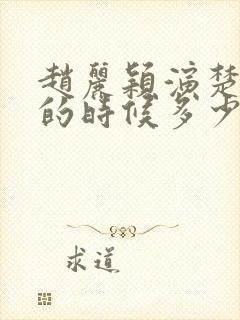 趙麗穎演楚
的時候多少
求道